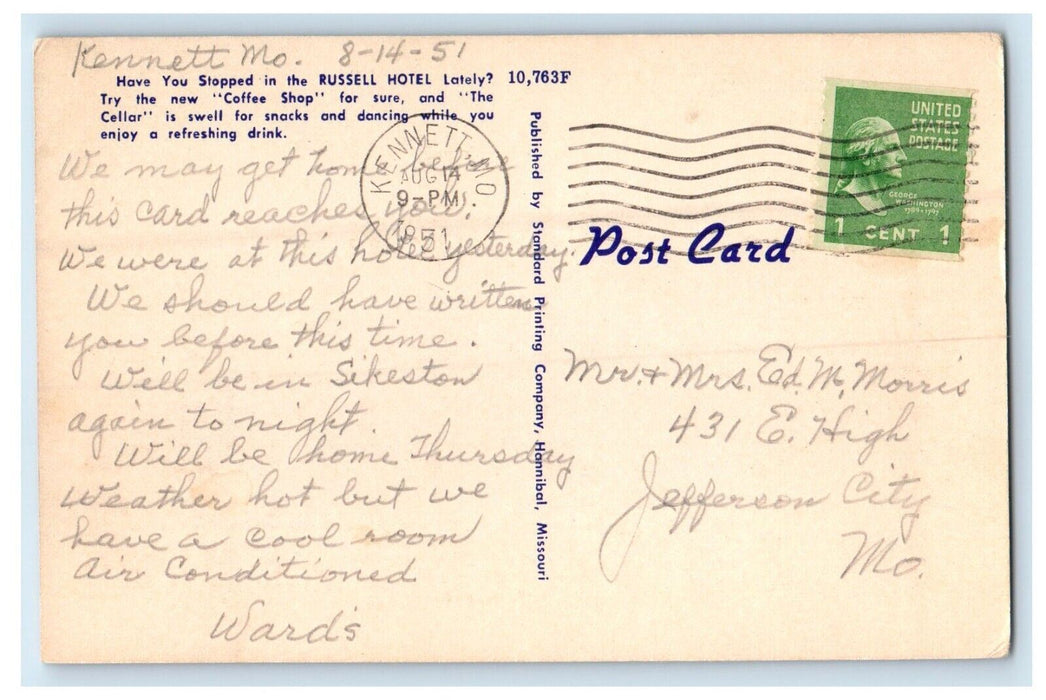 Kennett Mo. 8-14-51
Have You Stopped in the RUSSELL HOTEL Lately?
Try the new "Coffee Shop" for sure, and "The
Cellar" is swell for snacks and dancing while you
enjoy a refreshing drink.
10,763F
We may get home before
this card reaches you.
We were at this hotel yesterday.
We should have written
you before this time.
Will be in Sikeston
again to night.
Will be home Thursday
Weather hot but we
have a cool room
Air Conditioned
Ward's
KENNETT MO
AUG 14
9-PM
1951
Published by Standard Printing Company, Hannibal, Missouri
UNITED
STATES
POSTAGE
GEORGE
WASHINGTON
1789-1797
1 CENT 1
Post Card
Mr. + Mrs. Ed. W. Morris
431 E. High
Jefferson City
Mo.